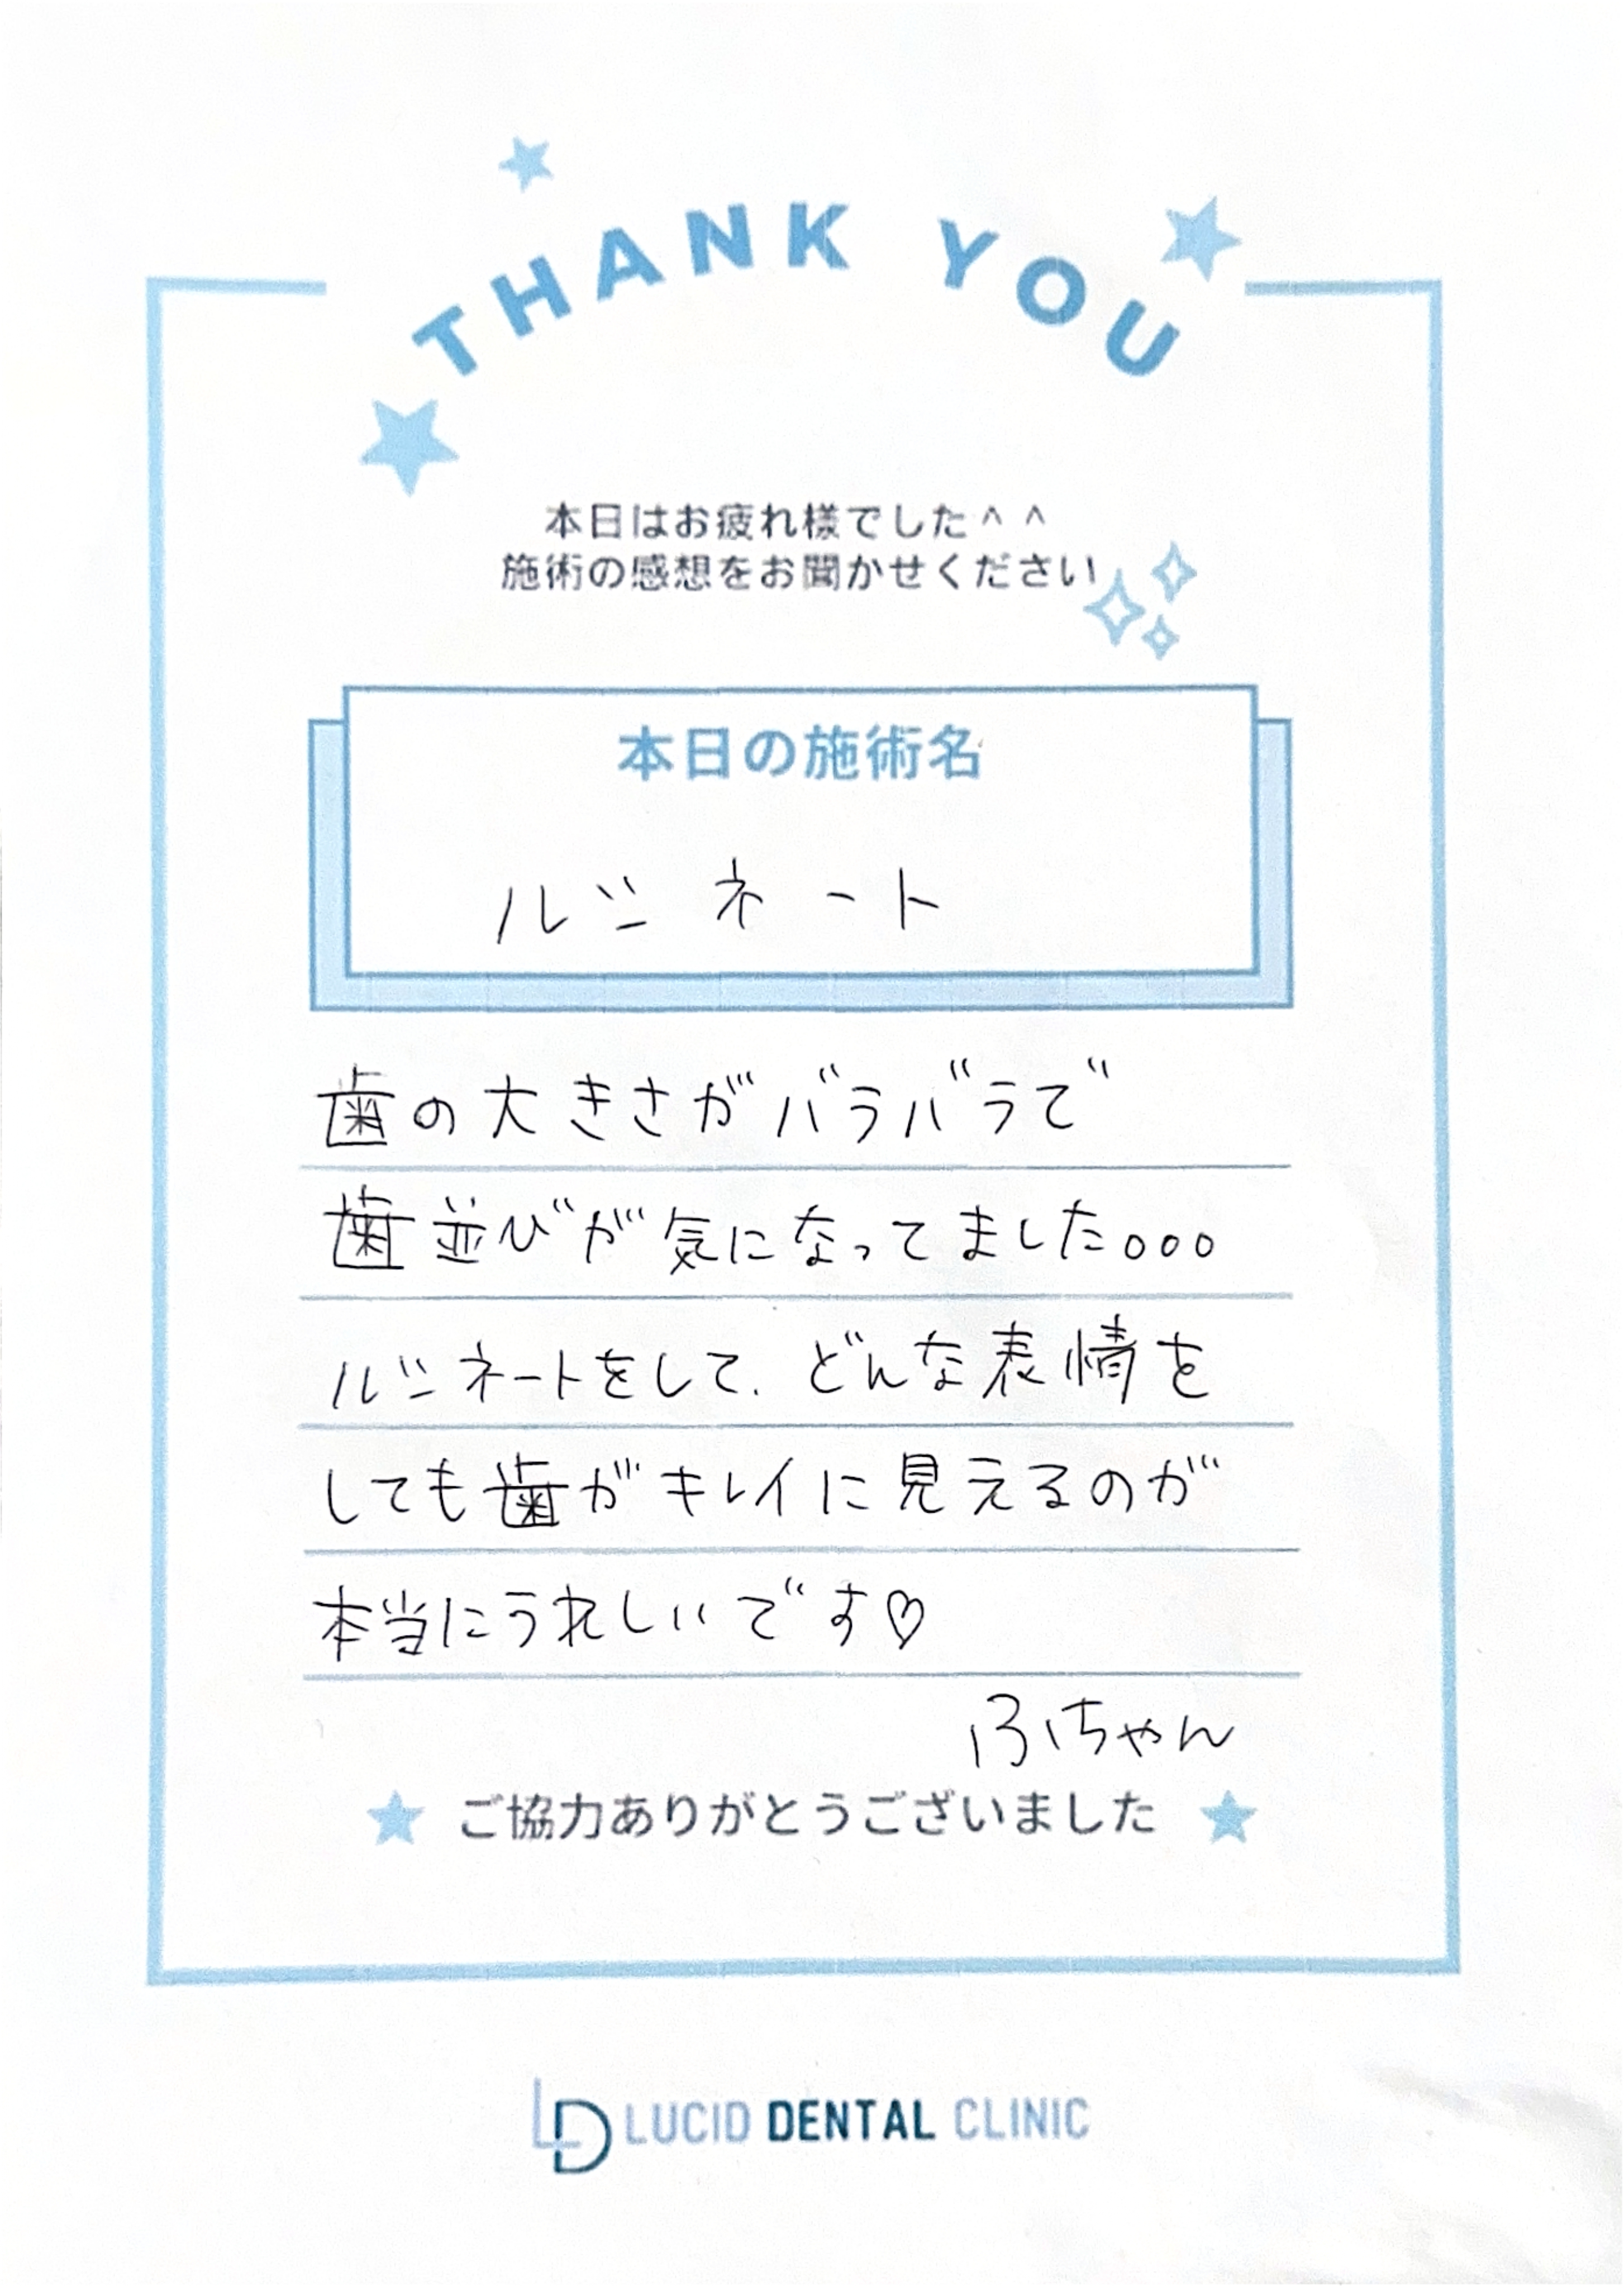 THANK YOU
本日はお疲れ様でした^ ^
施術の感想をお聞かせください
本日の施術名
ルミネート
歯の大きさがバラバラで
歯並びが気になってました。。。
ルミネートをして、どんな表情を
しても歯がキレイに見えるのが
本当にうれしいです♡
ふちゃん
ご協力ありがとうございました
LD LUCID DENTAL CLINIC